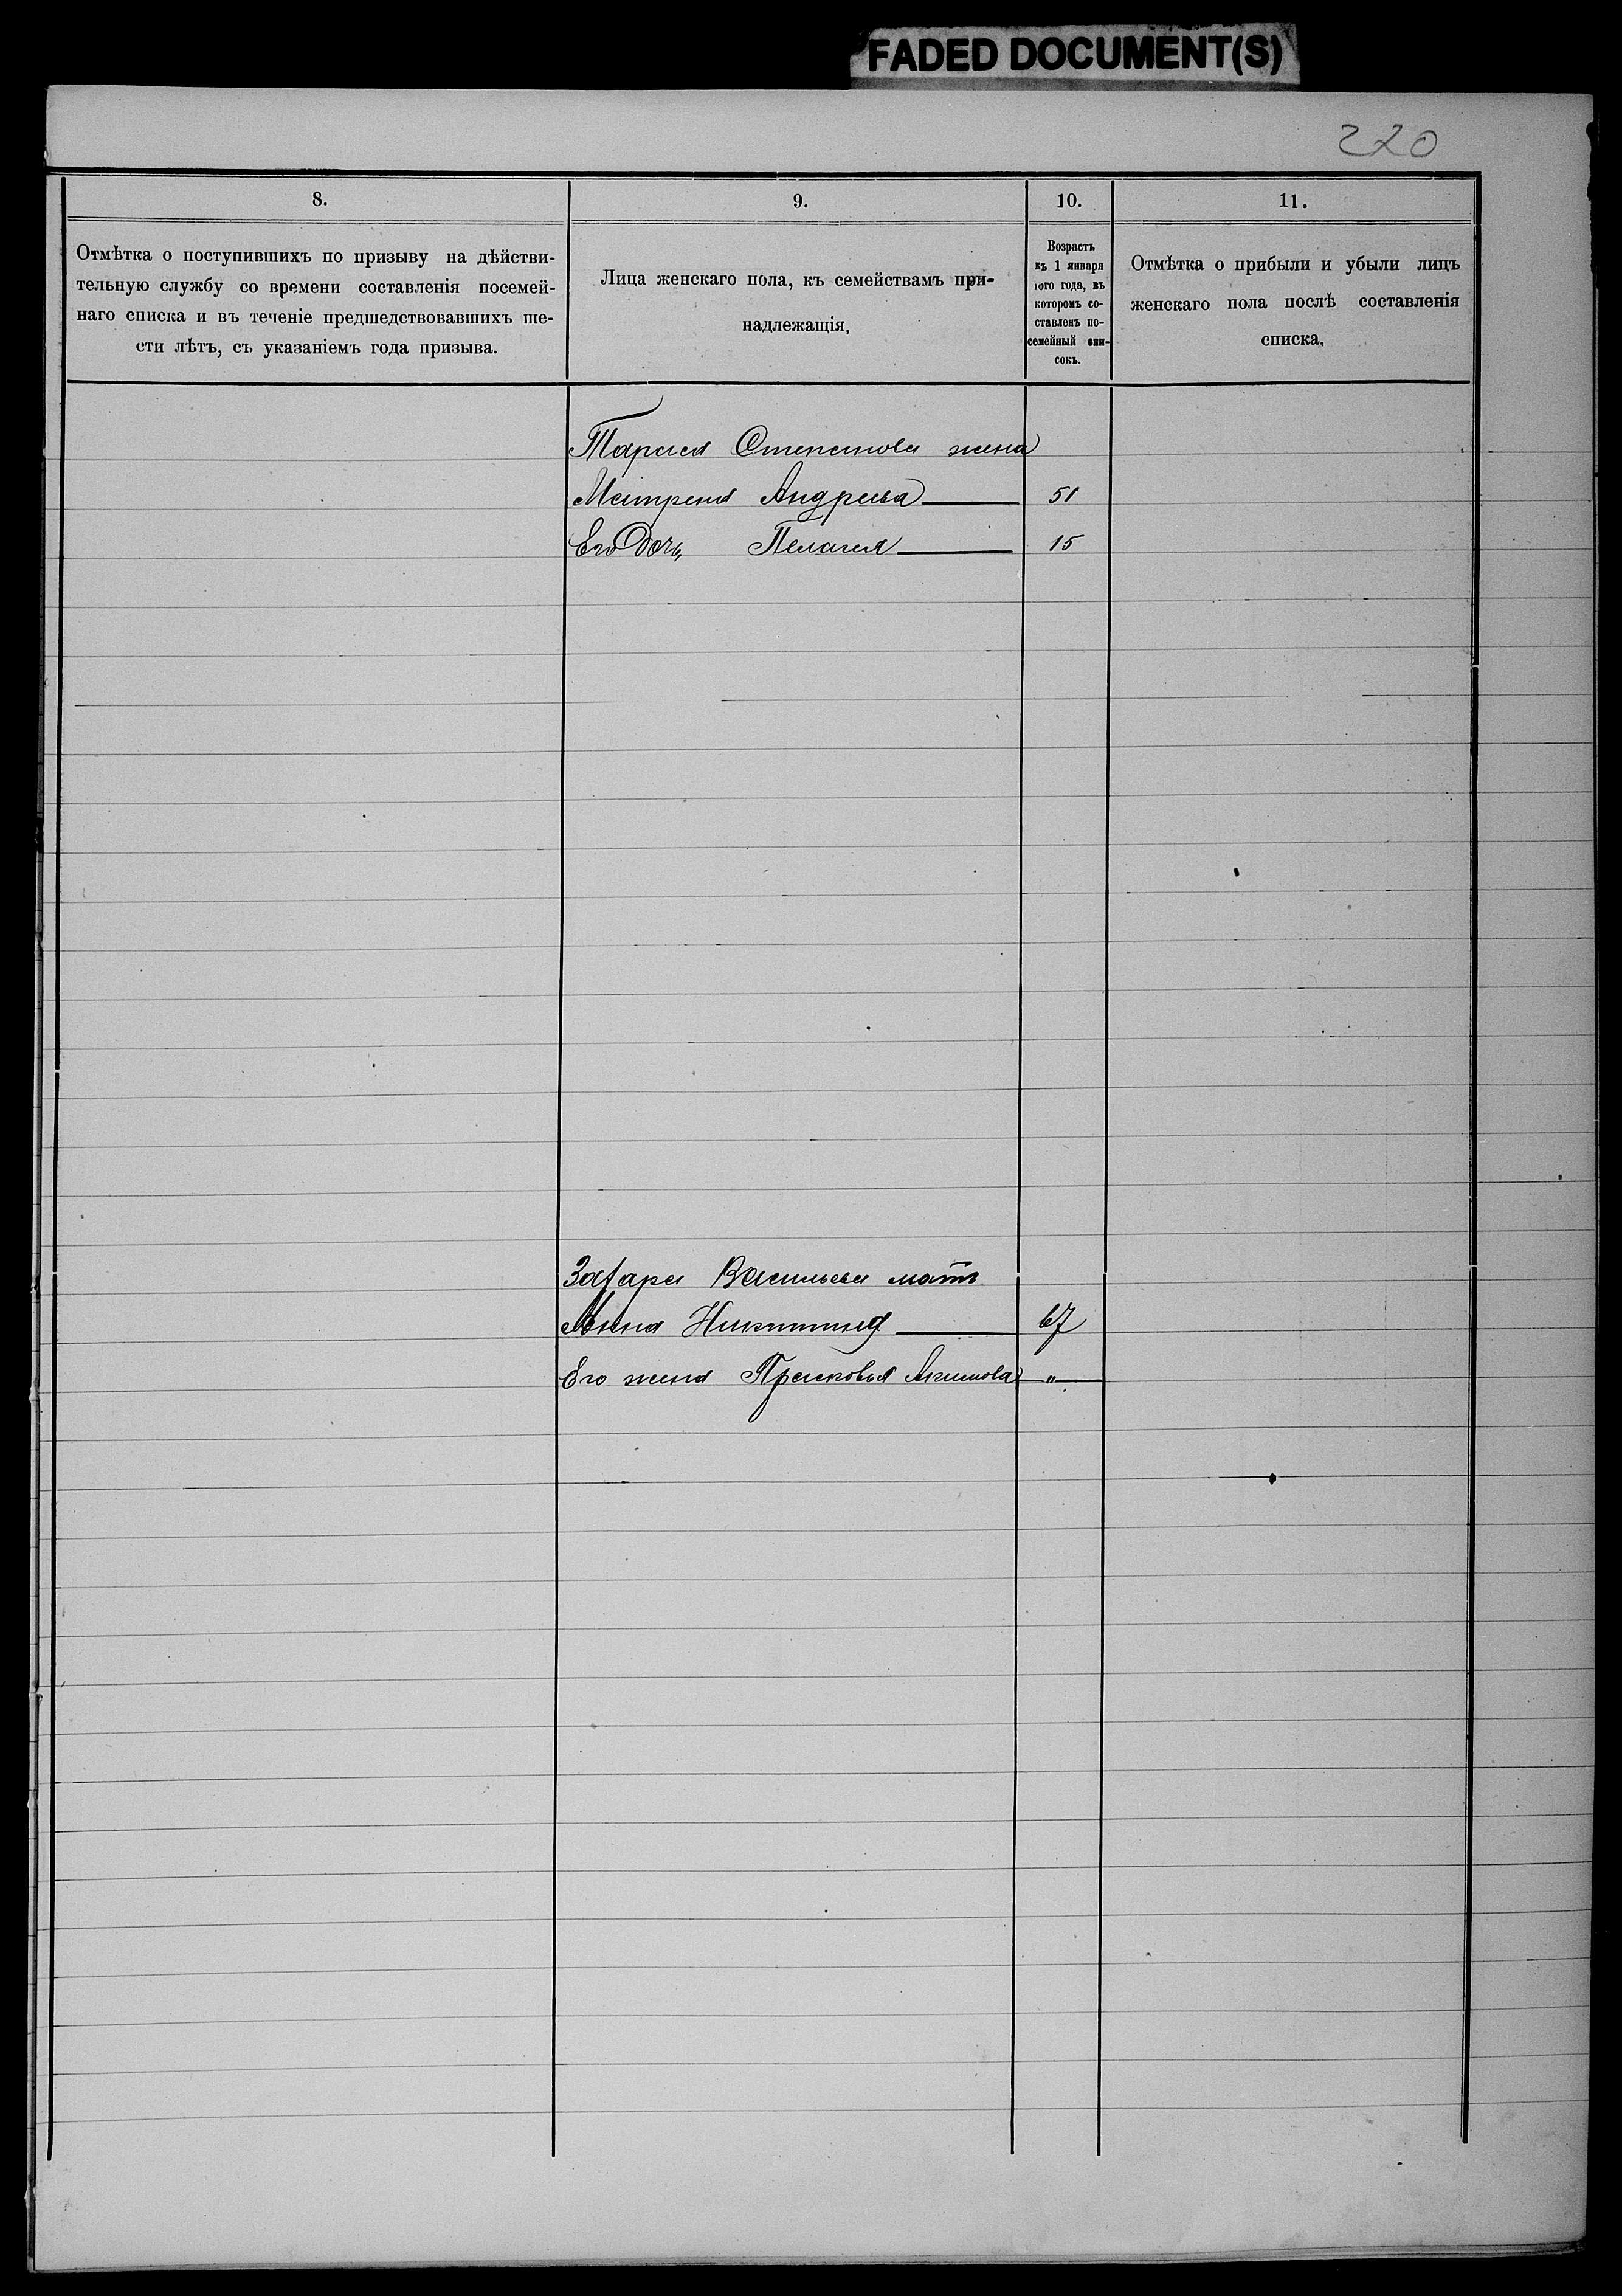 FADED DOCUMENT(S)
220
8.
9.
10.
11.
Отмѣтка о поступившихъ по призыву на дѣйстви-
тельную службу со времени составленія посемей-
наго списка и въ теченіе предшедствовавшихъ ше-
сти лѣтъ, съ указаніемъ года призыва.
Лица женскаго пола, къ семействамъ при-
надлежащія,
Возрастъ
къ 1 января
того года, въ
которомъ со-
ставленъ по-
семейный спи-
сокъ.
Отмѣтка о прибыли и убыли лицъ
женскаго пола послѣ составленія
списка,
Тараса Степанова жена
Матрена Андреева 51
Его Дочь Пелагея 15
Захара Васильева мать
Анна Никитина 67
Его жена Прасковья Акимова "